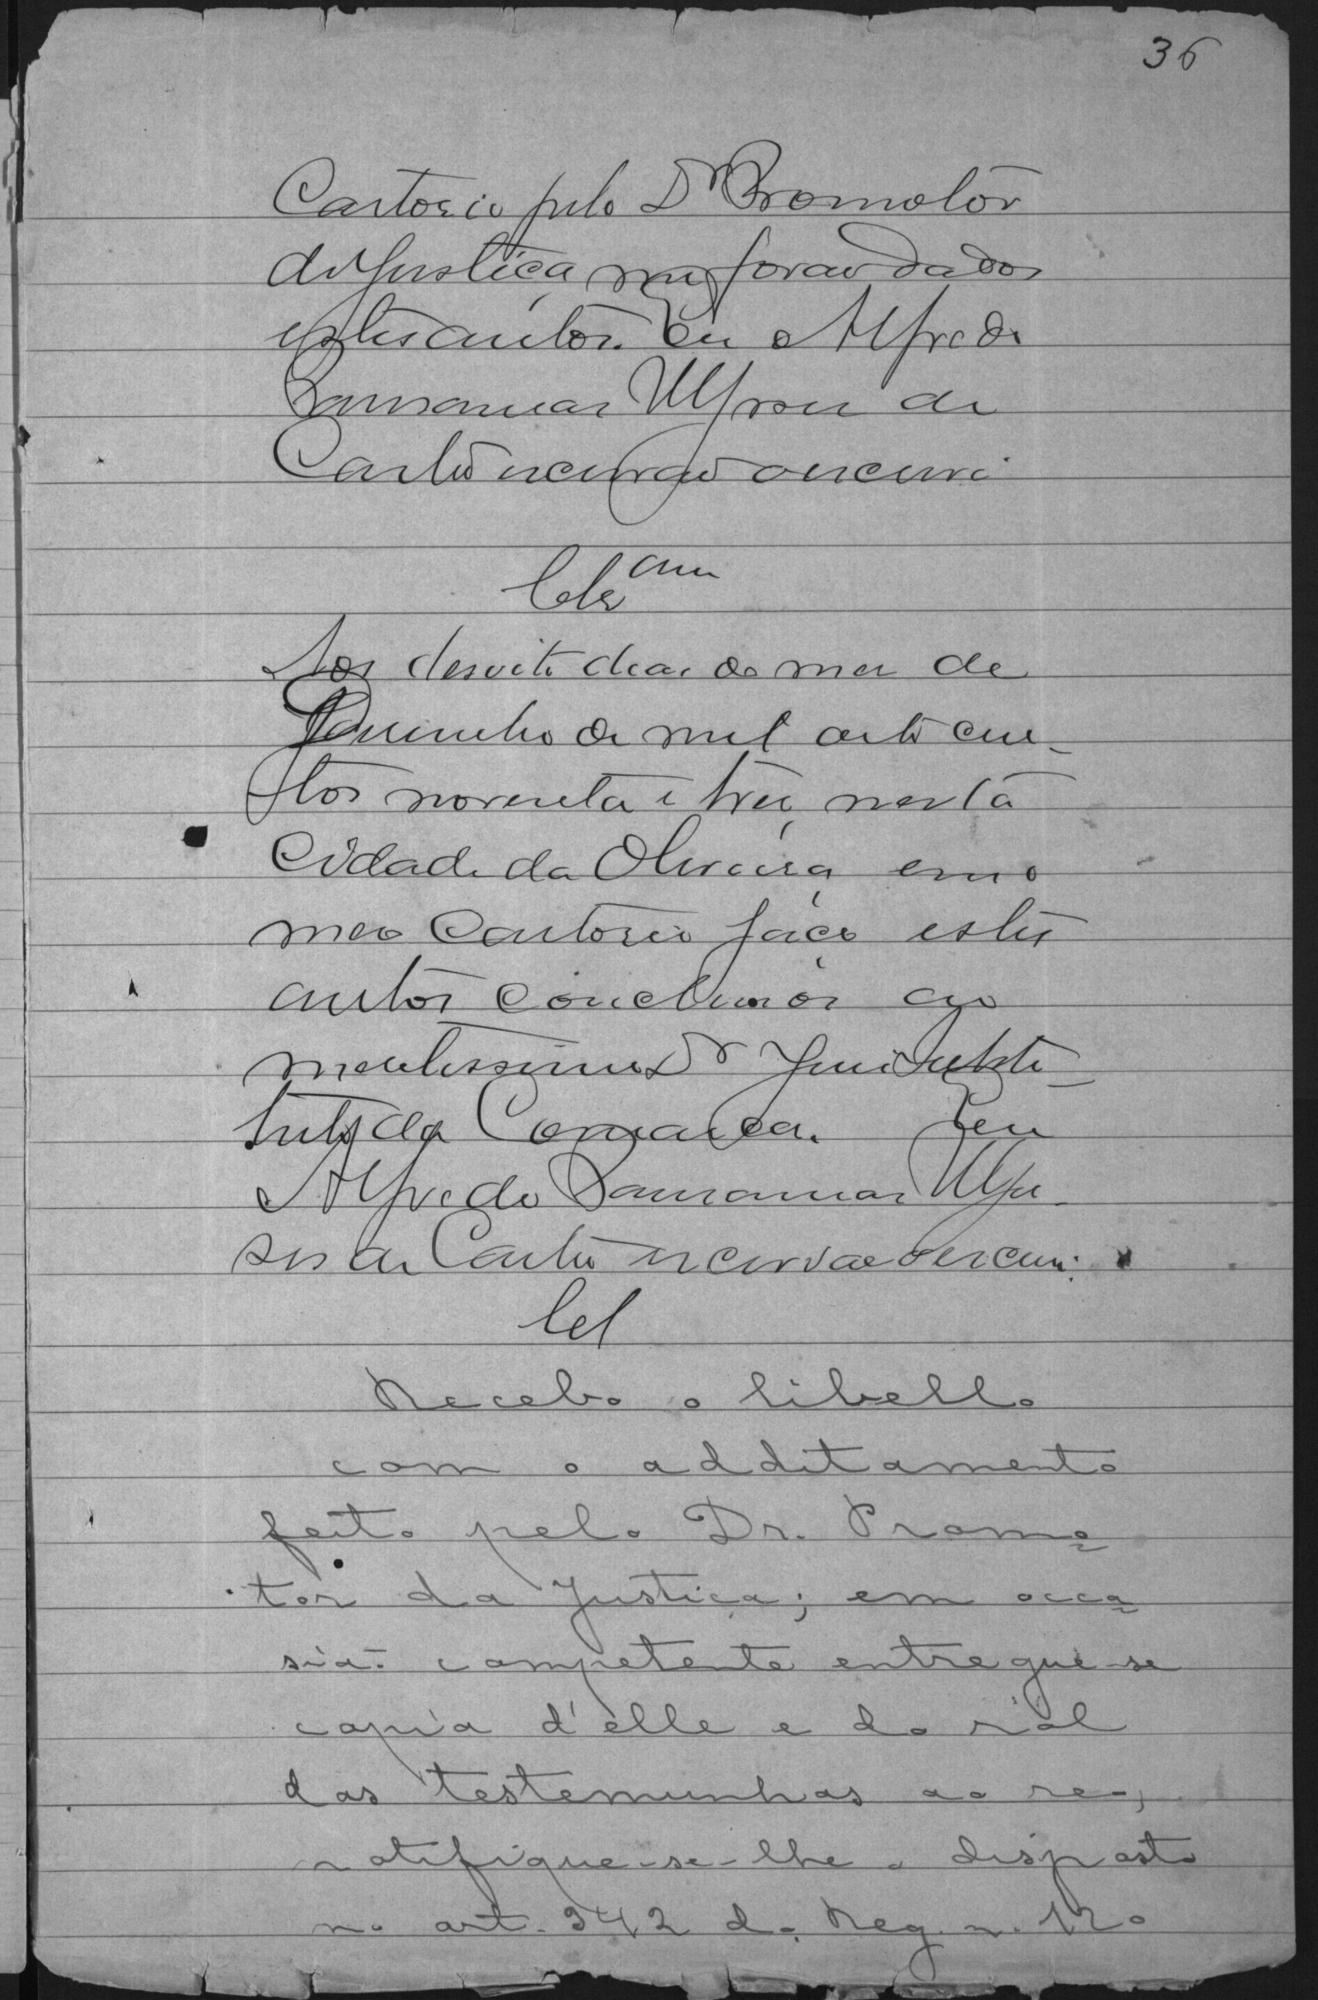 36
Cartorio pelo Dr Promotor
da Justiça me forão dados
estes autos. Eu Alfredo
Ulysses de
Castro escrivão escrevi
Clsam
Aos desoito dias do mez de
Junho de mil oito cen-
tos noventa e tres, nesta
Cidade da Oliveira em o
meo Cartorio faço estes
autos conclusos ao
meritissimo Dr Juiz Substi-
tuto da Comarca. Eu
Alfredo Ulys-
ses de Castro escrivão escrevi.
Cls
Recebo o libello
com o additamento
feito pelo Dr. Promo
tor da Justiça; em occa
sião competente entregue-se
copia d'elle e do rol
das testemunhas ao reo,
notifique-se-lhe o disposto
no art. 342 do Reg. n. 120